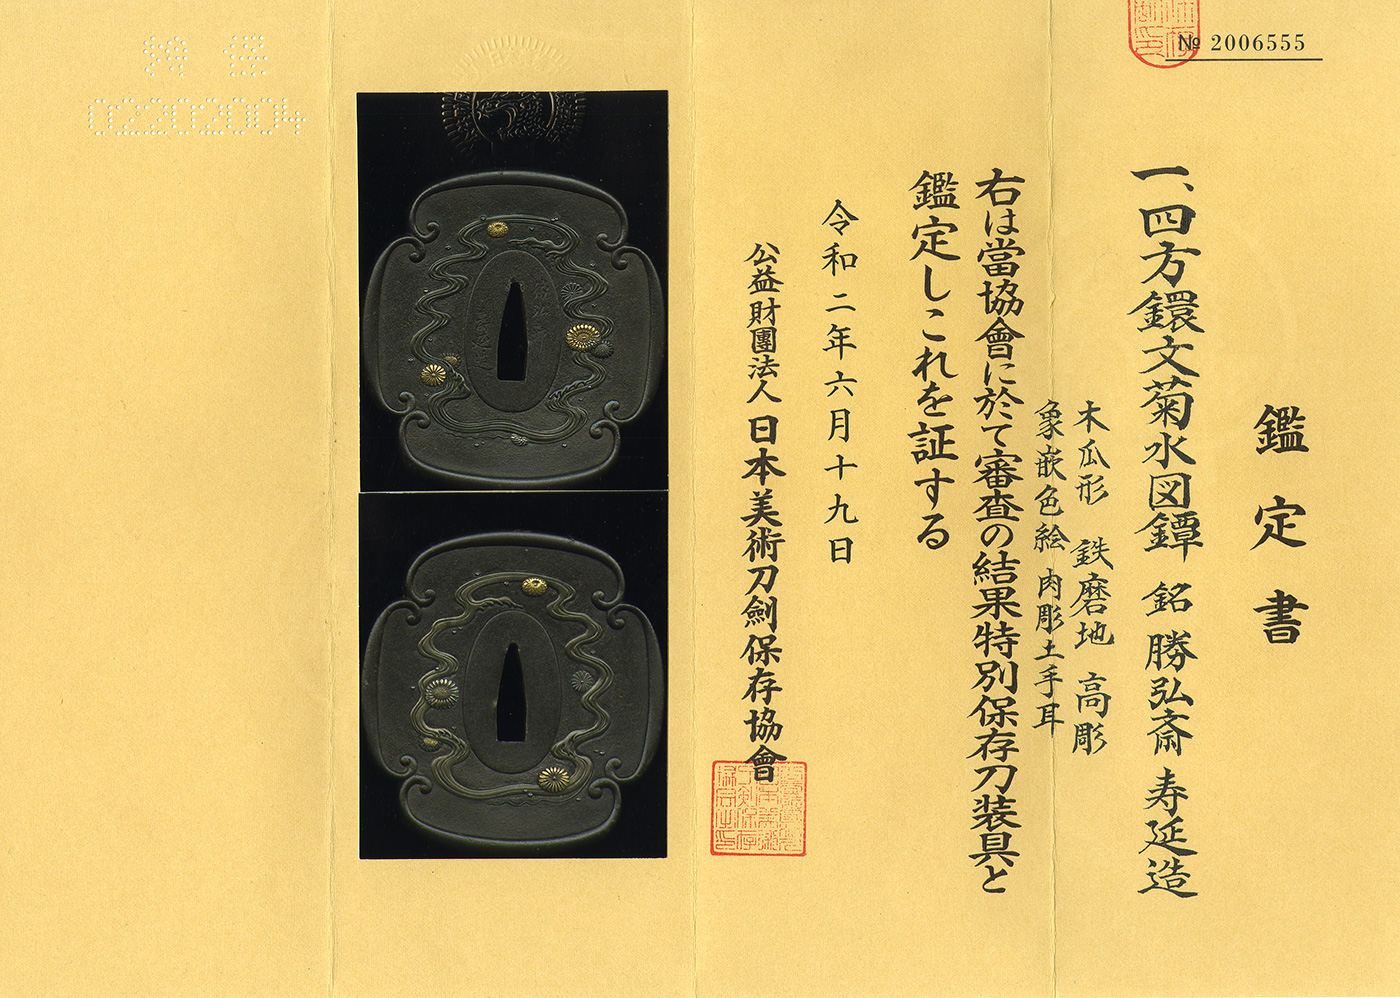 № 2006555
鑑定書
一、四方鐶文菊水図鐔 銘 勝弘斎寿延造
木瓜形 鉄磨地 高彫
象嵌色絵 肉彫土手耳
右は當協會に於て審査の結果特別保存刀装具と
鑑定しこれを証する
令和二年六月十九日
公益財團法人 日本美術刀劍保存協會
特 保
02202004